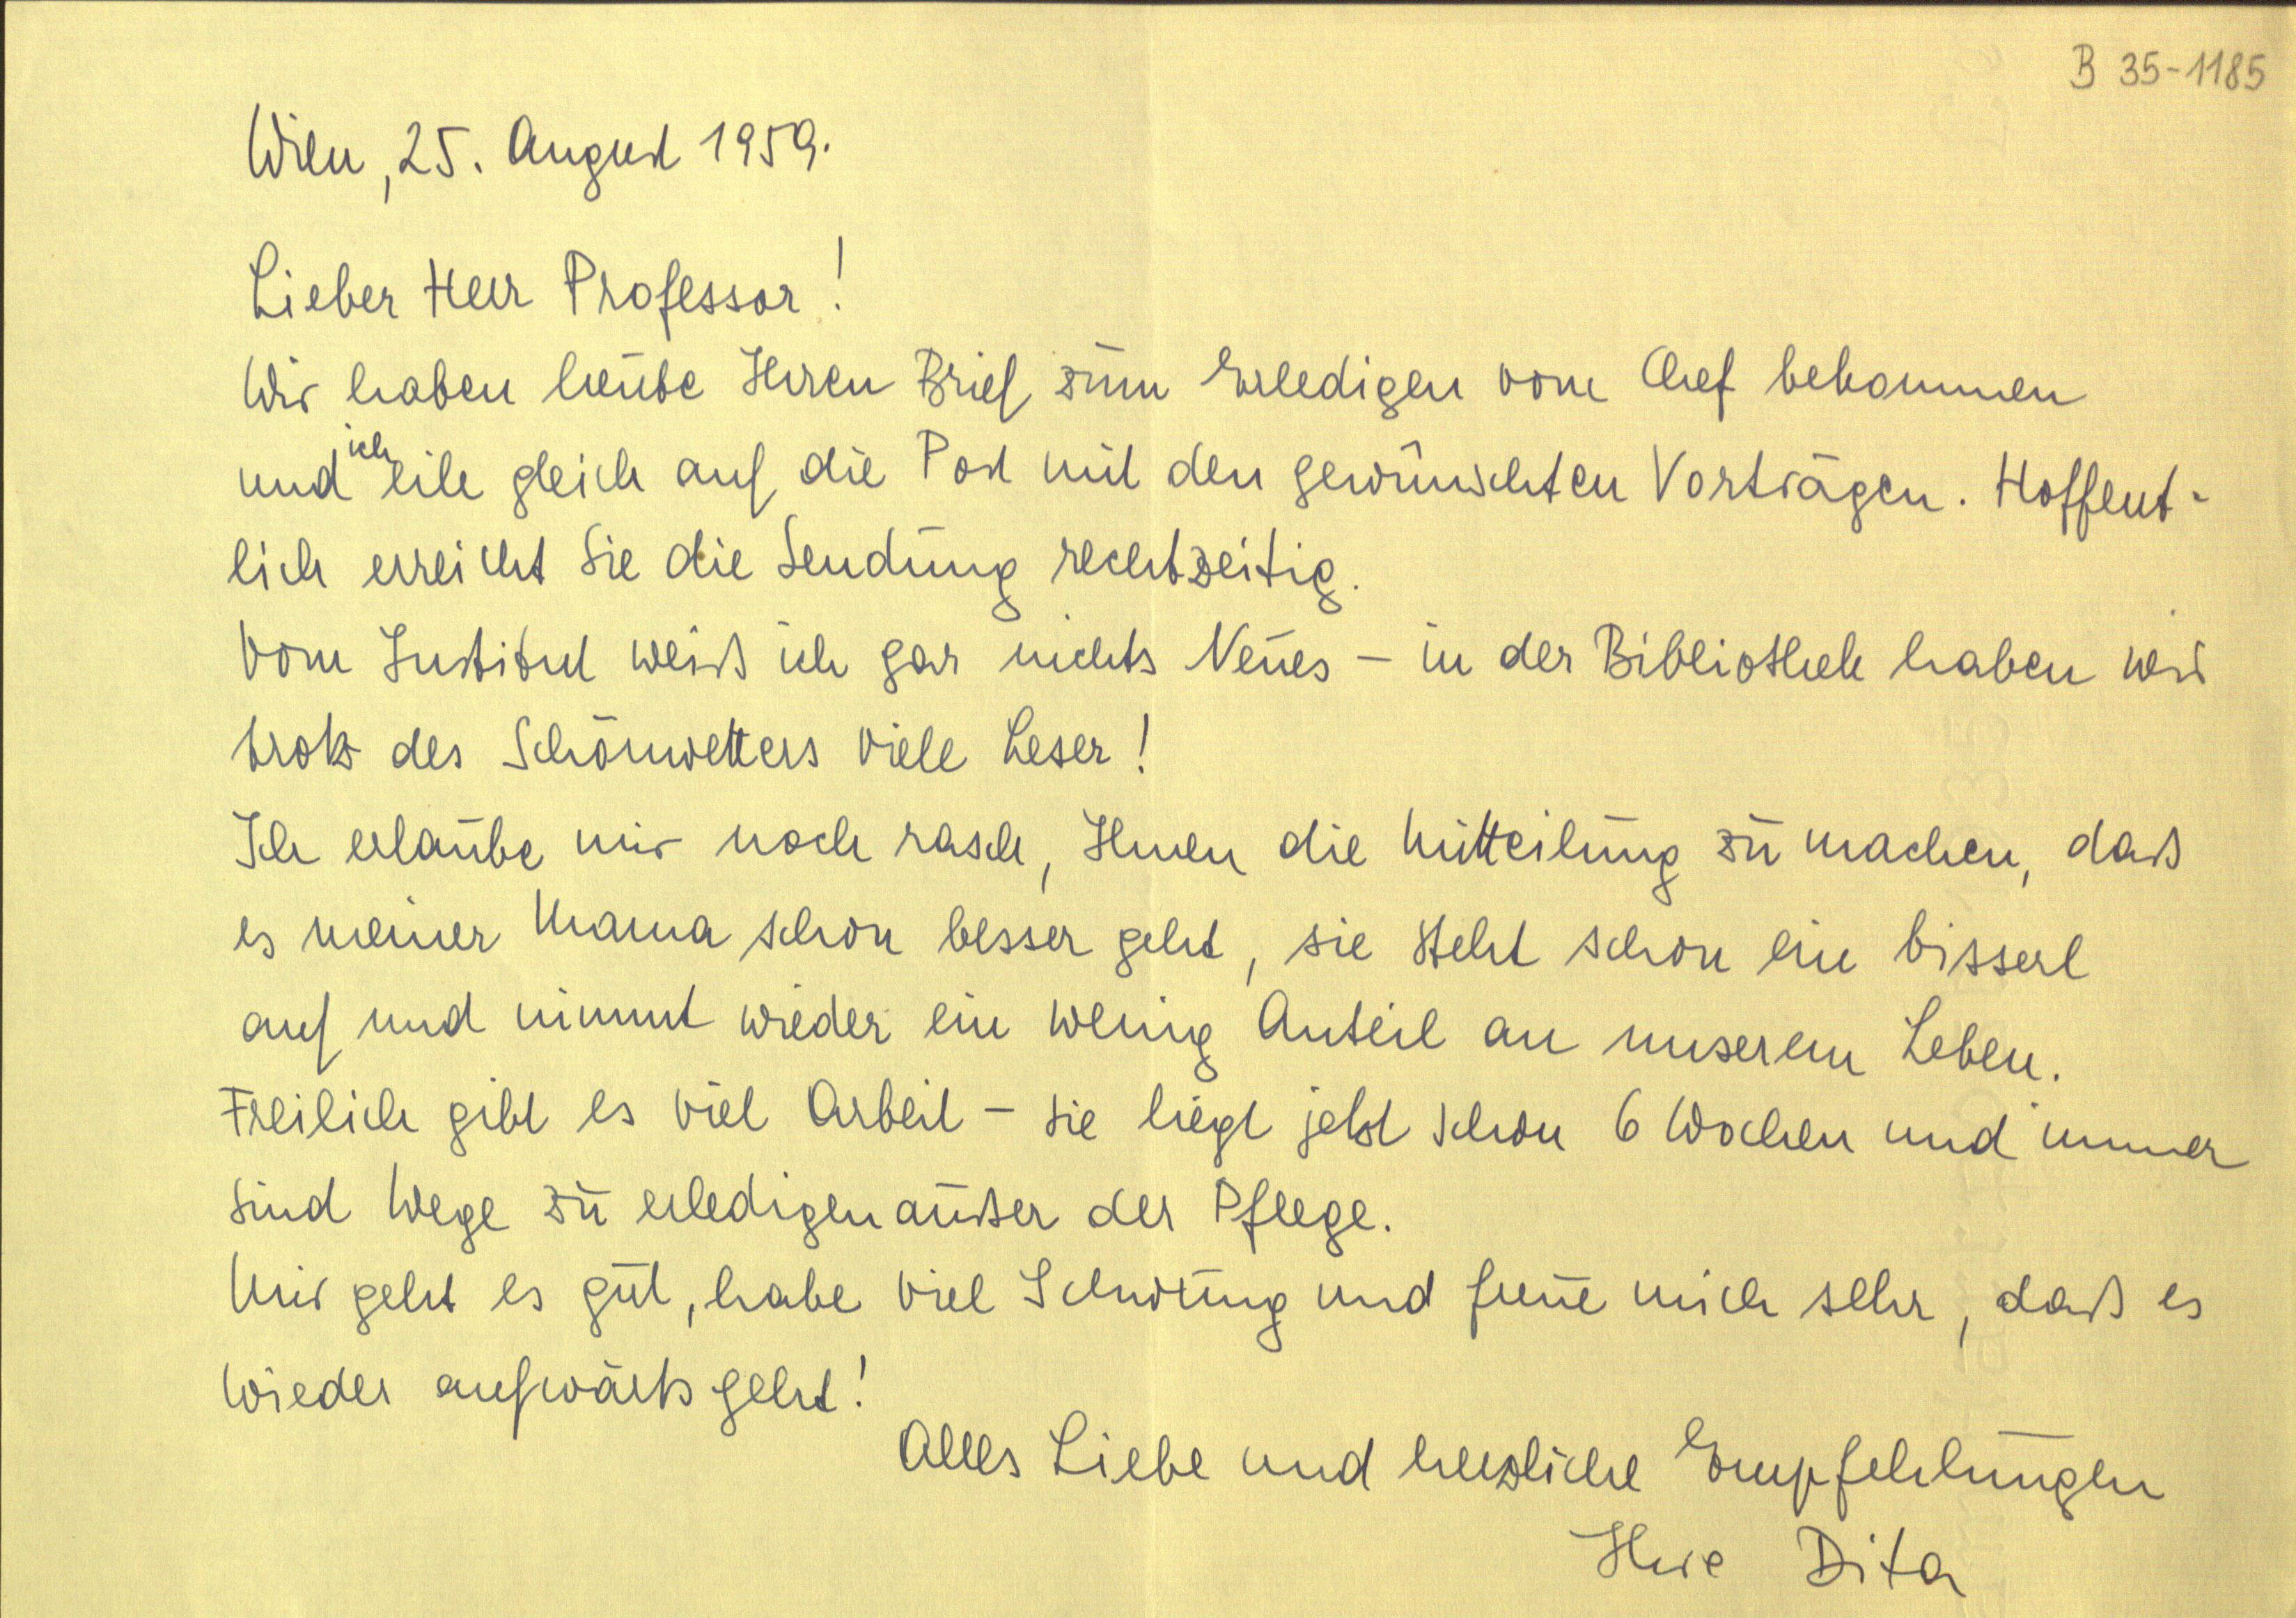 B 35-1185
Wien, 25. August 1959.
Lieber Herr Professor!
Wir haben heute Ihren Brief zum Erledigen vom Chef bekommen
und ich eile gleich auf die Post mit den gewünschten Vorträgen. Hoffent-
lich erreicht Sie die Sendung rechtzeitig.
Vom Institut weiß ich gar nichts Neues - in der Bibliothek haben wir
trotz des Schönwetters viele Leser!
Ich erlaube mir noch rasch, Ihnen die Mitteilung zu machen, daß
es meiner Mama schon besser geht, sie steht schon ein bisserl
auf und nimmt wieder ein wenig Anteil an unserem Leben.
Freilich gibt es viel Arbeit - sie liegt jetzt schon 6 Wochen und immer
sind Wege zu erledigen außer der Pflege.
Mir geht es gut, habe viel Schwung und freue mich sehr, daß es
wieder aufwärts geht!
Alles Liebe und herzliche Empfehlungen
Ihre Dita